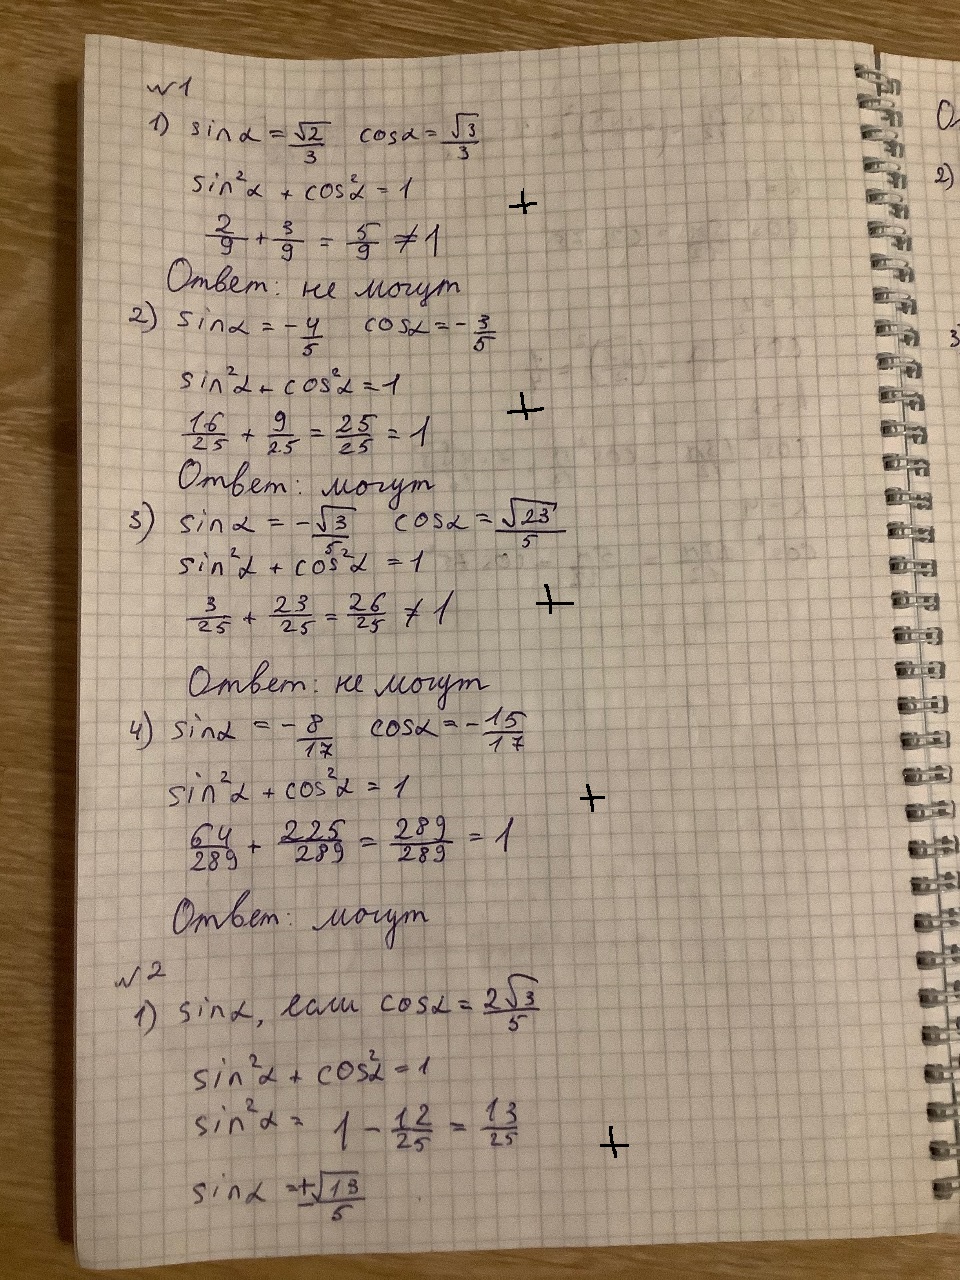 №1
1) sinα = √2/3 cosα = √3/3
sin²α + cos²α = 1
+
2/9 + 3/9 = 5/9 ≠ 1
Ответ: не могут
2) sinα = -4/5 cosα = -3/5
sin²α + cos²α = 1
+
16/25 + 9/25 = 25/25 = 1
Ответ: могут
3) sinα = -√3/5 cosα = √23/5
sin²α + cos²α = 1
+
3/25 + 23/25 = 26/25 ≠ 1
Ответ: не могут
4) sinα = -8/17 cosα = -15/17
sin²α + cos²α = 1
+
64/289 + 225/289 = 289/289 = 1
Ответ: могут
№2
1) sinα, если cosα = 2√3/5
sin²α + cos²α = 1
sin²α = 1 - 12/25 = 13/25
+
sinα = ±√13/5
2)
3)